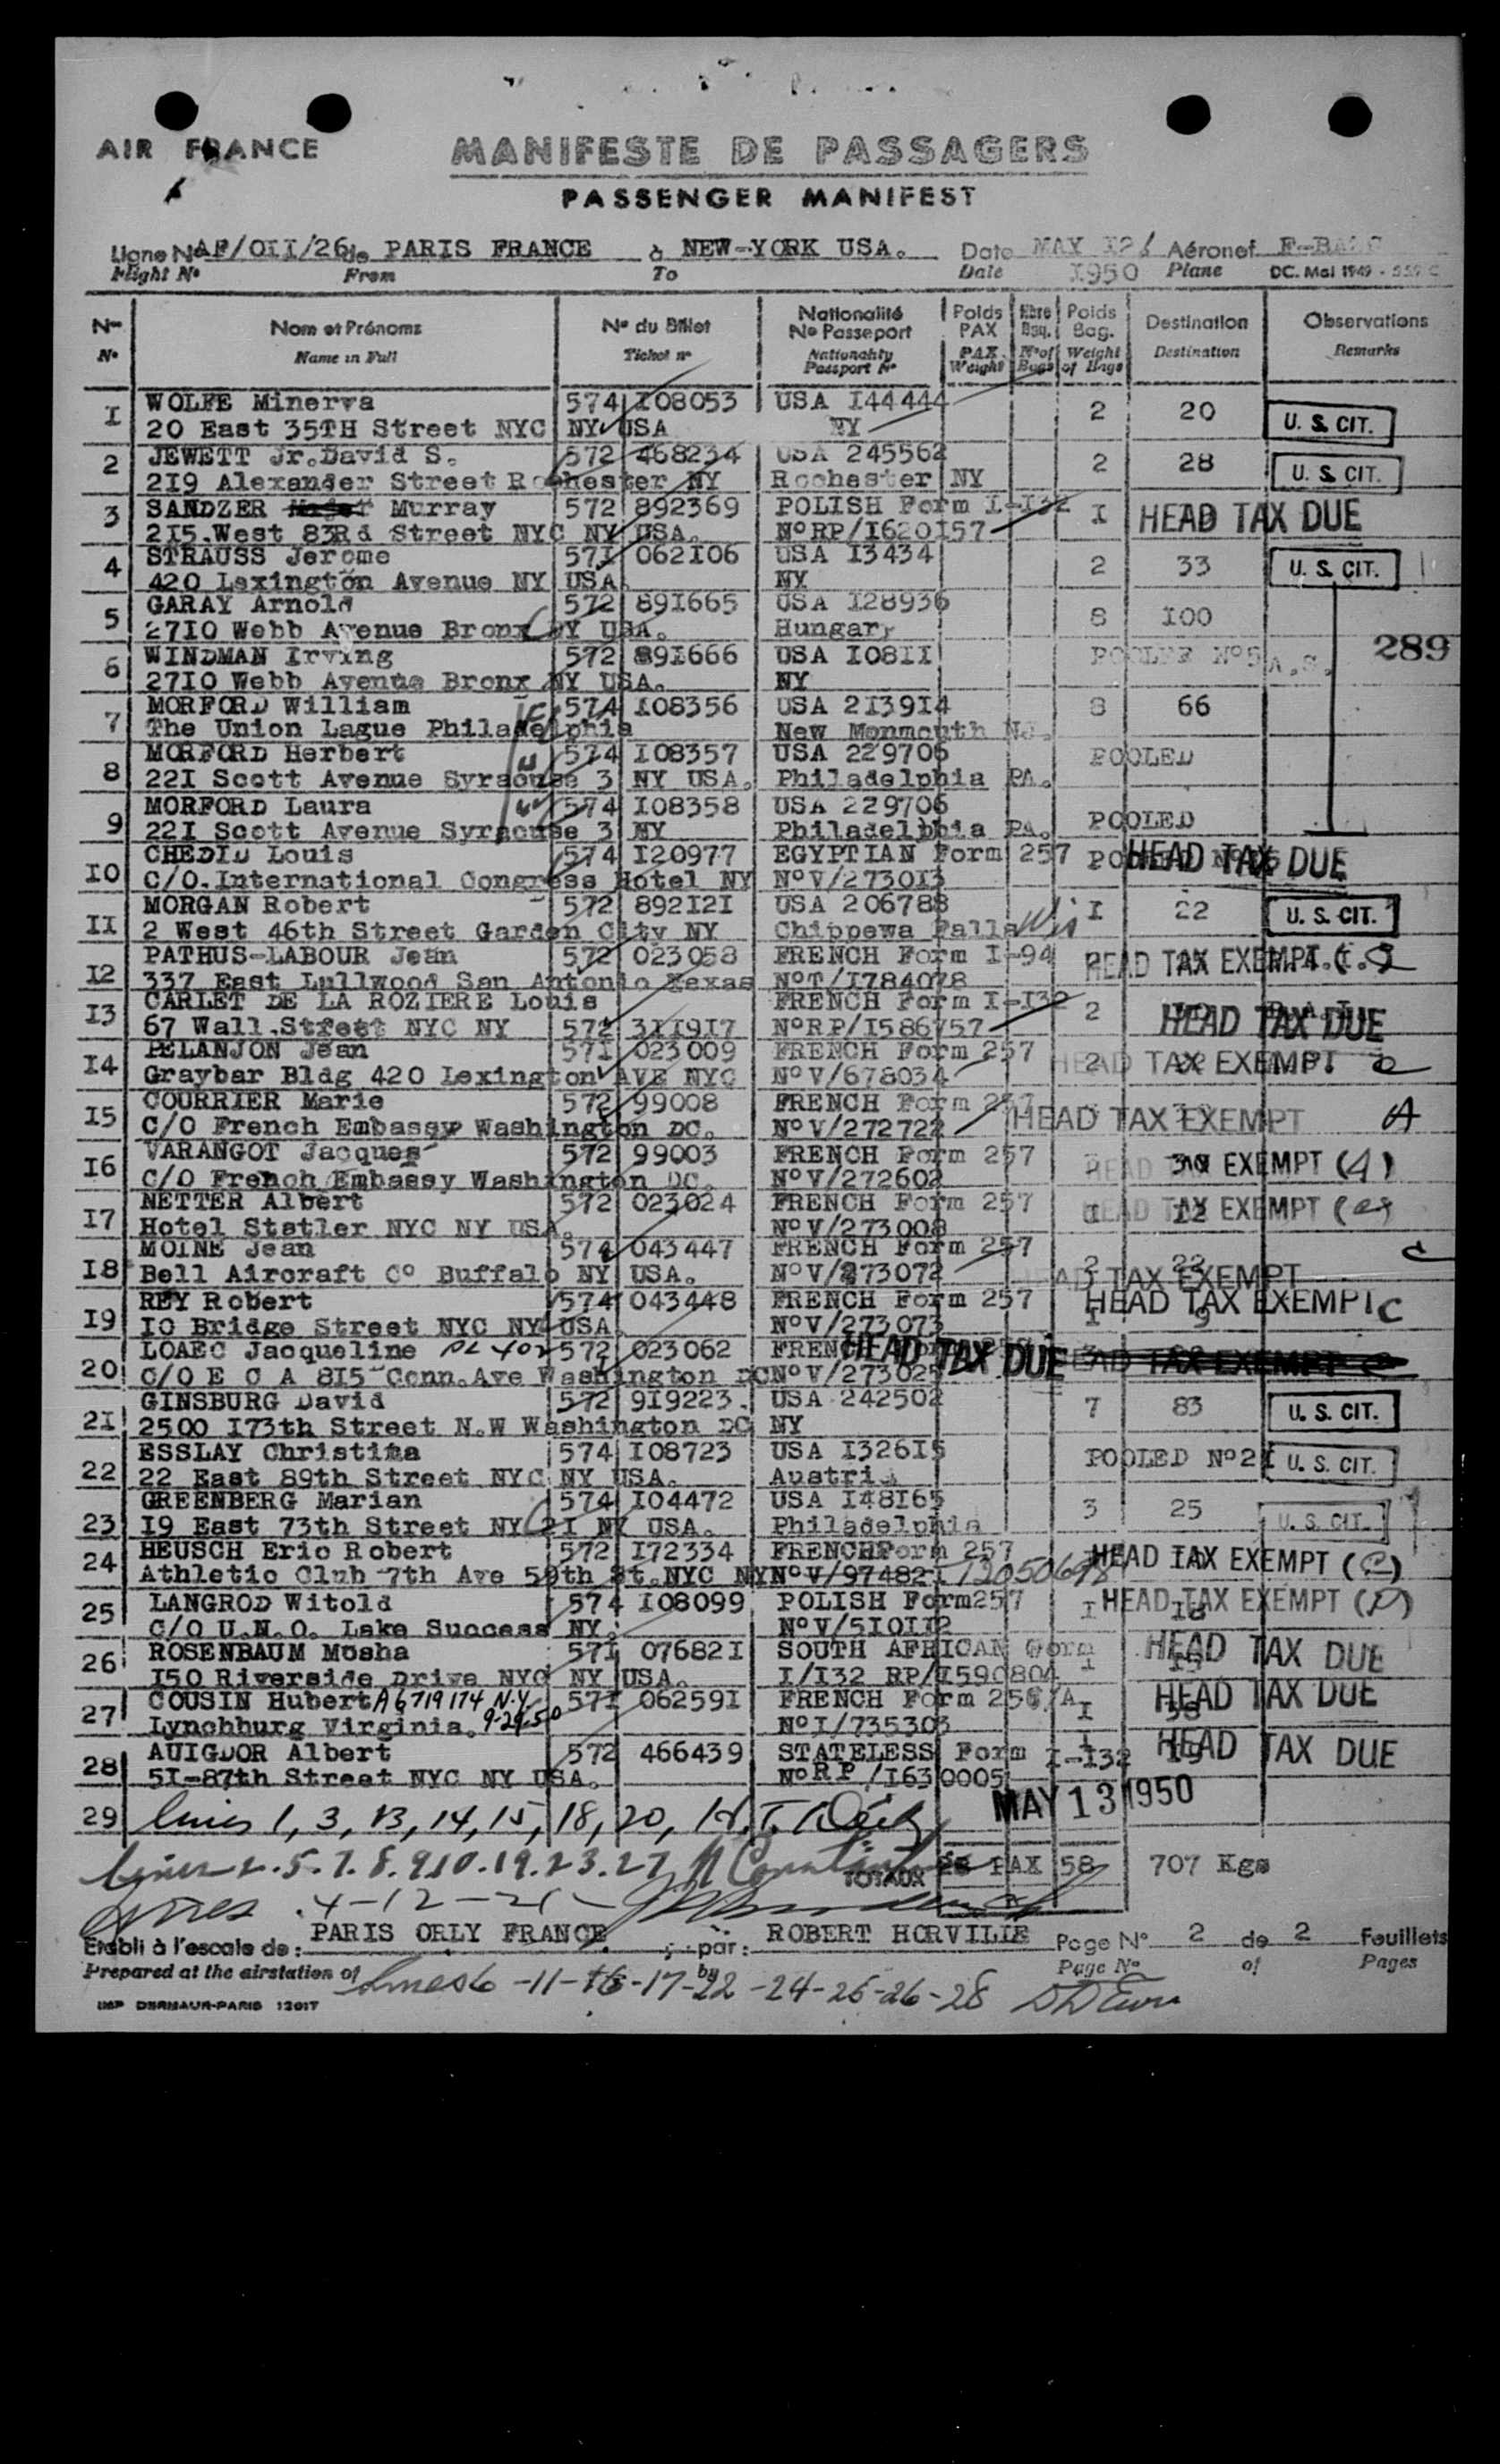 AIR FRANCE
MANIFESTE DE PASSAGERS
PASSENGER MANIFEST
Ligne No AF/OII/26 de PARIS FRANCE à NEW-YORK USA. Date MAY I2 Aéronef
Flight No From To Date I950 Plane DC. Mai 1949
No Nom et Prénoms No du Billet Nationalité No Passeport Poids PAX Nbre Bag. Poids Bag. Destination Observations
No Name in Full Ticket no Nationality Passport No PAX Weight No of Bags Weight of Bags Destination Remarks
I WOLFE Minerva 574 I08053 USA I44444 2 20 U. S. CIT.
20 East 35TH Street NYC NY USA NY
2 JEWETT Jr.David S. 572 468234 USA 245562 2 28 U. S. CIT.
219 Alexander Street Rochester NY Rochester NY
3 SANDZER Murray 572 892369 POLISH Form I-I32 I HEAD TAX DUE
2I5.West 83Rd Street NYC NY USA. NoRP/I620I57
4 STRAUSS Jerome 57I 062I06 USA I3434 2 33 U. S. CIT.
420 Lexington Avenue NY USA. NY
5 GARAY Arnold 572 89I665 USA I28936 8 I00
27I0 Webb Avenue Bronx NY USA. Hungary
6 WINDMAN Irving 572 89I666 USA I08II POOLED No5 A.S. 289
27I0 Webb Avenue Bronx NY USA. NY
7 MORFORD William 574 I08356 USA 2I39I4 8 66
The Union Lague Philadelphia New Monmouth NJ.
8 MORFORD Herbert 574 I08357 USA 229706 POOLED
22I Scott Avenue Syracuse 3 NY USA. Philadelphia PA.
9 MORFORD Laura 574 I08358 USA 229706 POOLED
22I Scott Avenue Syracuse 3 NY Philadelphia PA.
I0 CHEDID Louis 574 I20977 EGYPTIAN Form 257 HEAD TAX DUE
C/O.International Congress Hotel NY NoV/2730I3
II MORGAN Robert 572 892I2I USA 206788 I 22 U. S. CIT.
2 West 46th Street Garden City NY Chippewa Falls Wis
I2 PATHUS-LABOUR Jean 572 023058 FRENCH Form I-94 HEAD TAX EXEMPT
337 East Lullwood San Antonio Texas NoT/I784078
I3 CARLET DE LA ROZIERE Louis FRENCH Form I-I32 2 HEAD TAX DUE
67 Wall.Street NYC NY 572 3II9I7 NoRP/I586757
I4 PELANJON Jean 57I 023009 FRENCH Form 257 2 HEAD TAX EXEMPT
Graybar Bldg 420 Lexington AVE NYC NoV/678034
I5 COURRIER Marie 572 99008 FRENCH Form 257 HEAD TAX EXEMPT A
C/O French Embassy Washington DC. NoV/272722
I6 VARANGOT Jacques 572 99003 FRENCH Form 257 HEAD TAX EXEMPT (A)
C/O French Embassy Washington DC. NoV/272602
I7 NETTER Albert 572 023024 FRENCH Form 257 I I2 HEAD TAX EXEMPT
Hotel Statler NYC NY USA. NoV/273008
I8 MOINE Jean 574 043447 FRENCH Form 257 2 22 HEAD TAX EXEMPT C
Bell Aircraft Co Buffalo NY USA. NoV/273072
I9 REY Robert 574 043448 FRENCH Form 257 I 9 HEAD TAX EXEMPT C
I0 Bridge Street NYC NY USA NoV/273073
20 LOAEC Jacqueline 572 023062 FRENCH HEAD TAX DUE HEAD TAX EXEMPT
C/O E C A 8I5 Conn.Ave Washington DC NoV/273025
2I GINSBURG David 572 9I9223. USA 242502 7 83 U. S. CIT.
2500 I73th Street N.W Washington DC NY
22 ESSLAY Christina 574 I08723 USA I326I5 POOLED No2I U. S. CIT.
22 East 89th Street NYC NY USA. Austria
23 GREENBERG Marian 574 I04472 USA I48I65 3 25 U. S. CIT.
I9 East 73th Street NYC 2I NY USA. Philadelphia
24 HEUSCH Eric Robert 572 I72334 FRENCH Form 257 HEAD TAX EXEMPT (C)
Athletic Club 7th Ave 59th St.NYC NY NoV/97482I
25 LANGROD Witold 574 I08099 POLISH Form257 I I8 HEAD TAX EXEMPT (D)
C/O U.N.O. Lake Success NY. NoV/5I0II2
26 ROSENBAUM Mosha 57I 07682I SOUTH AFRICAN Form I HEAD TAX DUE
I50 Riverside Drive NYC NY USA. I/I32 RP/I590804
27 COUSIN Hubert A6719174 N.Y. 57I 06259I FRENCH Form 256/A I HEAD TAX DUE
Lynchburg Virginia. 9-29-50 NoI/735303
28 AUIGDOR Albert 572 466439 STATELESS Form I-I32 I HEAD TAX DUE
5I-87th Street NYC NY USA. NoRP/I630005
MAY 13 1950
29 Lines 1, 3, 13, 14, 15, 18, 20,
Lines 2.5.7.8.9.10.19.23.27
TOTAUX 28 PAX 58 707 Kgs
Lines 4-12-21
Etabli à l'escale de: PARIS ORLY FRANCE par: ROBERT HORVILLE Page No 2 de 2 Feuillets
Prepared at the airstation of by Page No of Pages
Lines 6-11-16-17-22-24-25-26-28
IMP DERMAUR-PARIS 12017